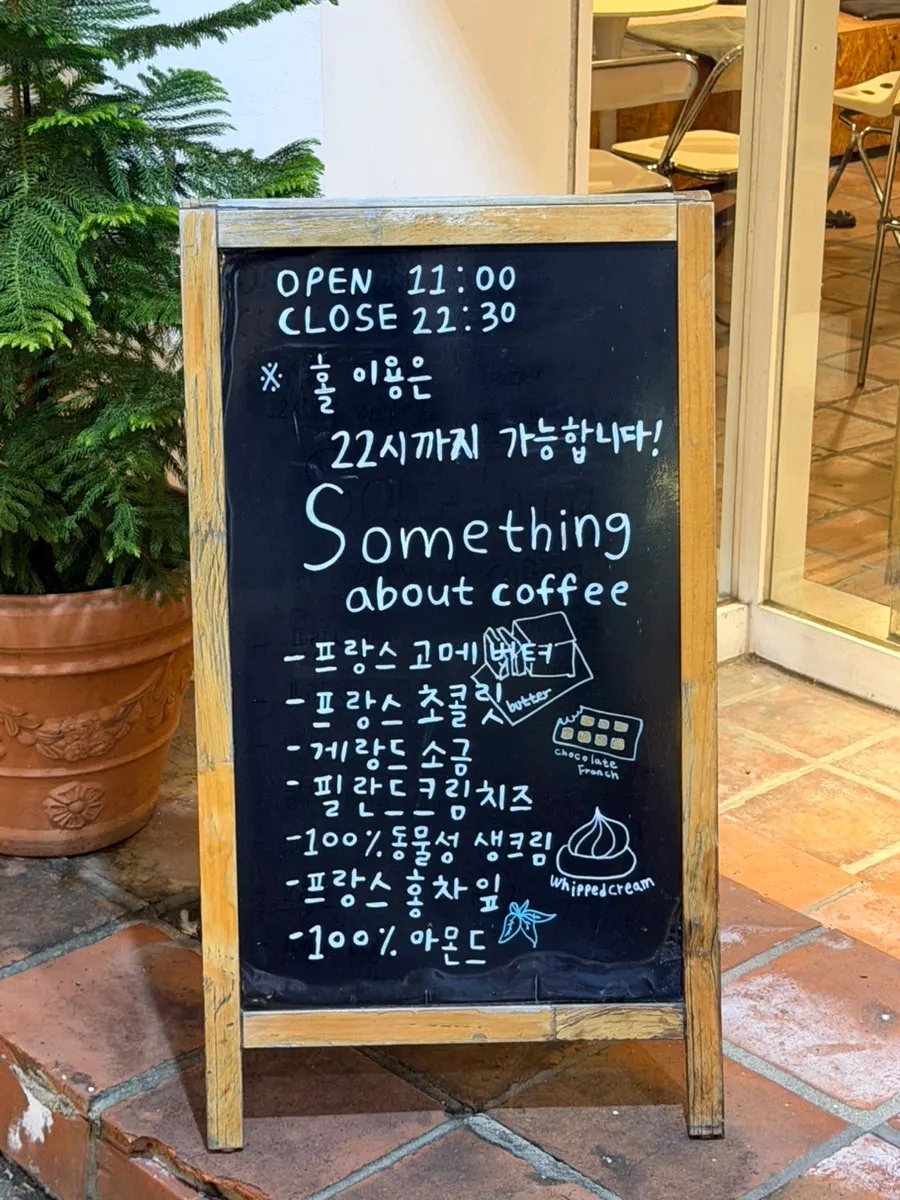 OPEN 11:00
CLOSE 22:30
※ 홀 이용은
22시까지 가능합니다!
Something
about coffee
-프랑스 고메 버터
butter
-프랑스 초콜릿
chocolate
French
-게랑드 소금
-필란드크림치즈
-100%동물성 생크림
whippedcream
-프랑스 홍차잎
-100% 아몬드